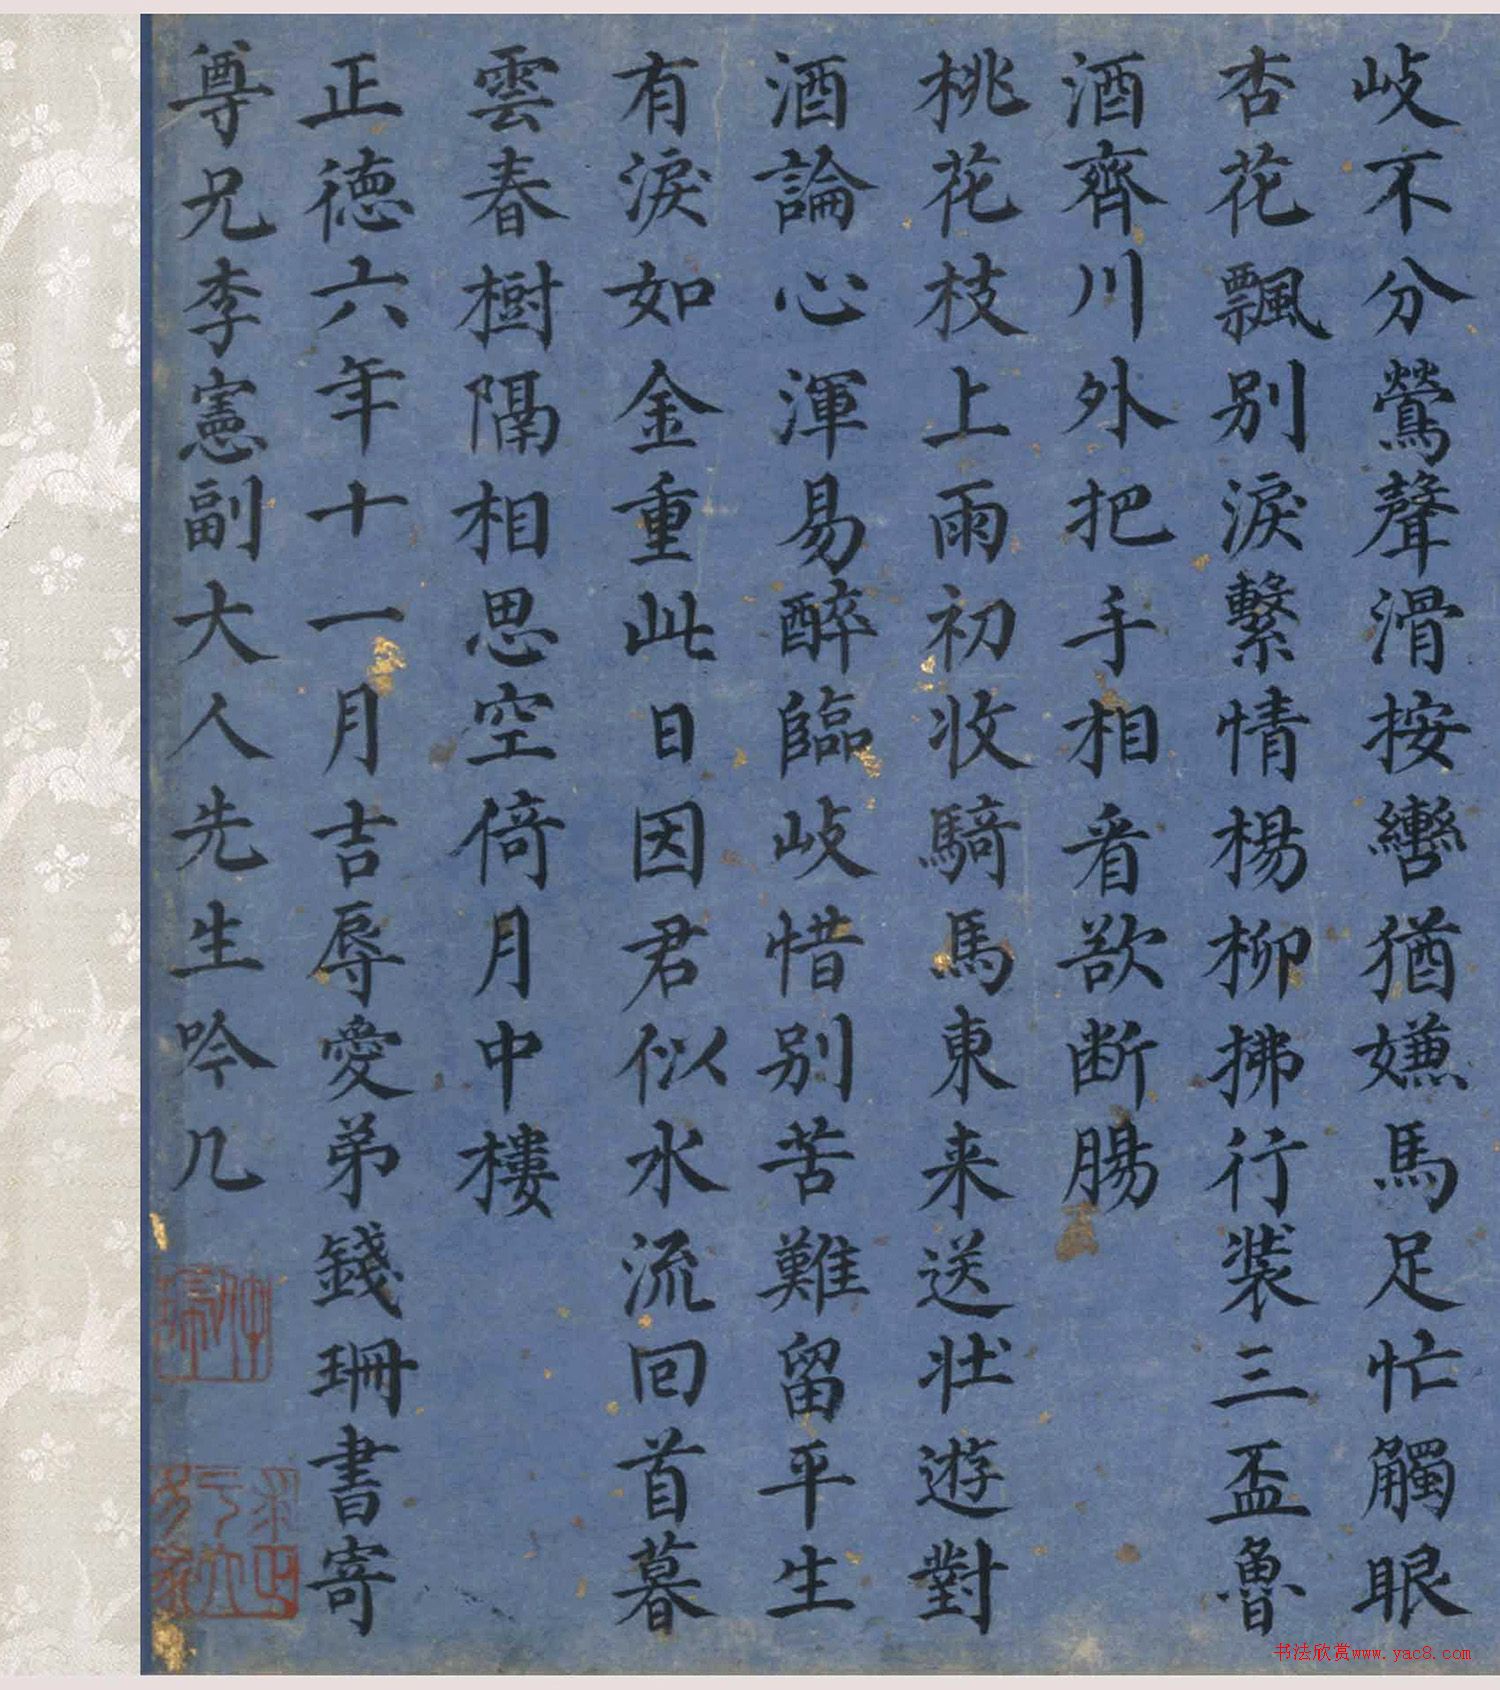 岐不分鶯聲滑按轡猶嫌馬足忙觸眼
杏花飄別淚繫情楊柳拂行装三盃魯
酒齊川外把手相看欲断腸
桃花枝上雨初收騎馬東来送壮遊對
酒論心渾易醉臨岐惜別苦難留平生
有淚如金重此日因君似水流回首暮
雲春樹隔相思空倚月中樓
正徳六年十一月吉辱愛弟錢珊書寄
尊兄李憲副大人先生吟几
书法欣赏www.yac8.com